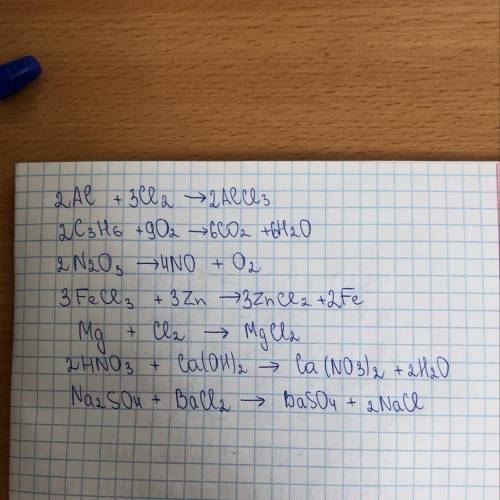 2Al + 3Cl2 →2AlCl3
2C3H6 +9O2 →6CO2 +6H2O
2N2O3 →4NO + O2
3FeCl3 +3Zn →3ZnCl2 +2Fe
Mg + Cl2 → MgCl2
2HNO3 + Ca(OH)2 → Ca(NO3)2 +2H2O
Na2SO4 + BaCl2 → BaSO4 + 2NaCl